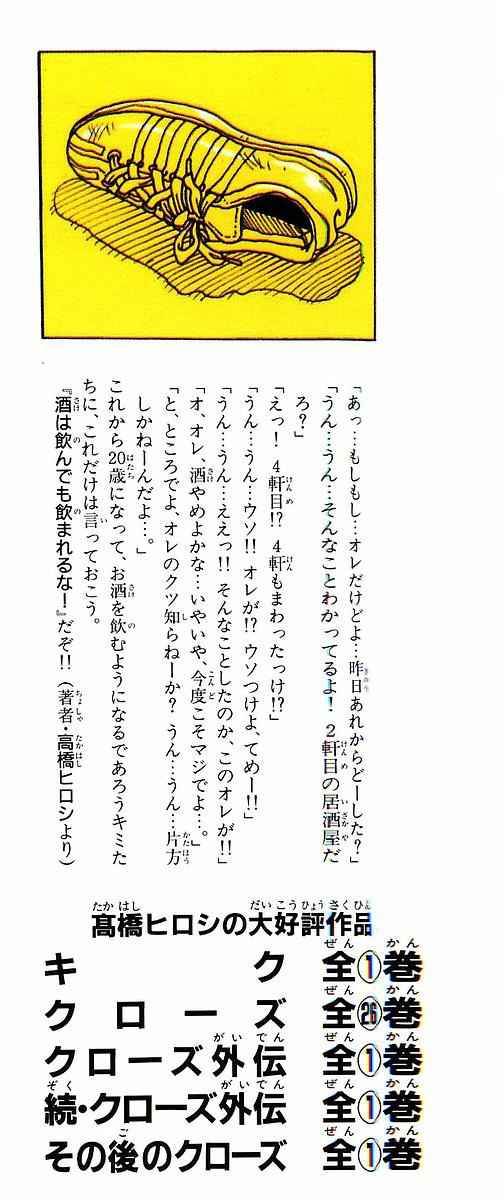 「あっ…もしもし…オレだけどよ…昨日あれからどーした？」
「うん…うん…そんなことわかってるよ！ 2軒目の居酒屋だ
ろ？」
「えっ！ 4軒目!? 4軒もまわったっけ!?」
「うん…うん…ウソ!! オレが!? ウソつけよ、てめー!!」
「うん…うん…ええっ!! そんなことしたのか、このオレが!!」
「オ、オレ、酒やめよかな…いやいや、今度こそマジでよ…。」
「と、ところでよ、オレのクツ知らねーか？ うん…うん…片方
しかねーんだよ…。」
これから20歳になって、お酒を飲むようになるであろうキミた
ちに、これだけは言っておこう。
『酒は飲んでも飲まれるな！』だぞ!!（著者・高橋ヒロシより）
髙橋ヒロシの大好評作品
キク 全①巻
クローズ 全㉖巻
クローズ外伝 全①巻
続・クローズ外伝 全①巻
その後のクローズ 全①巻